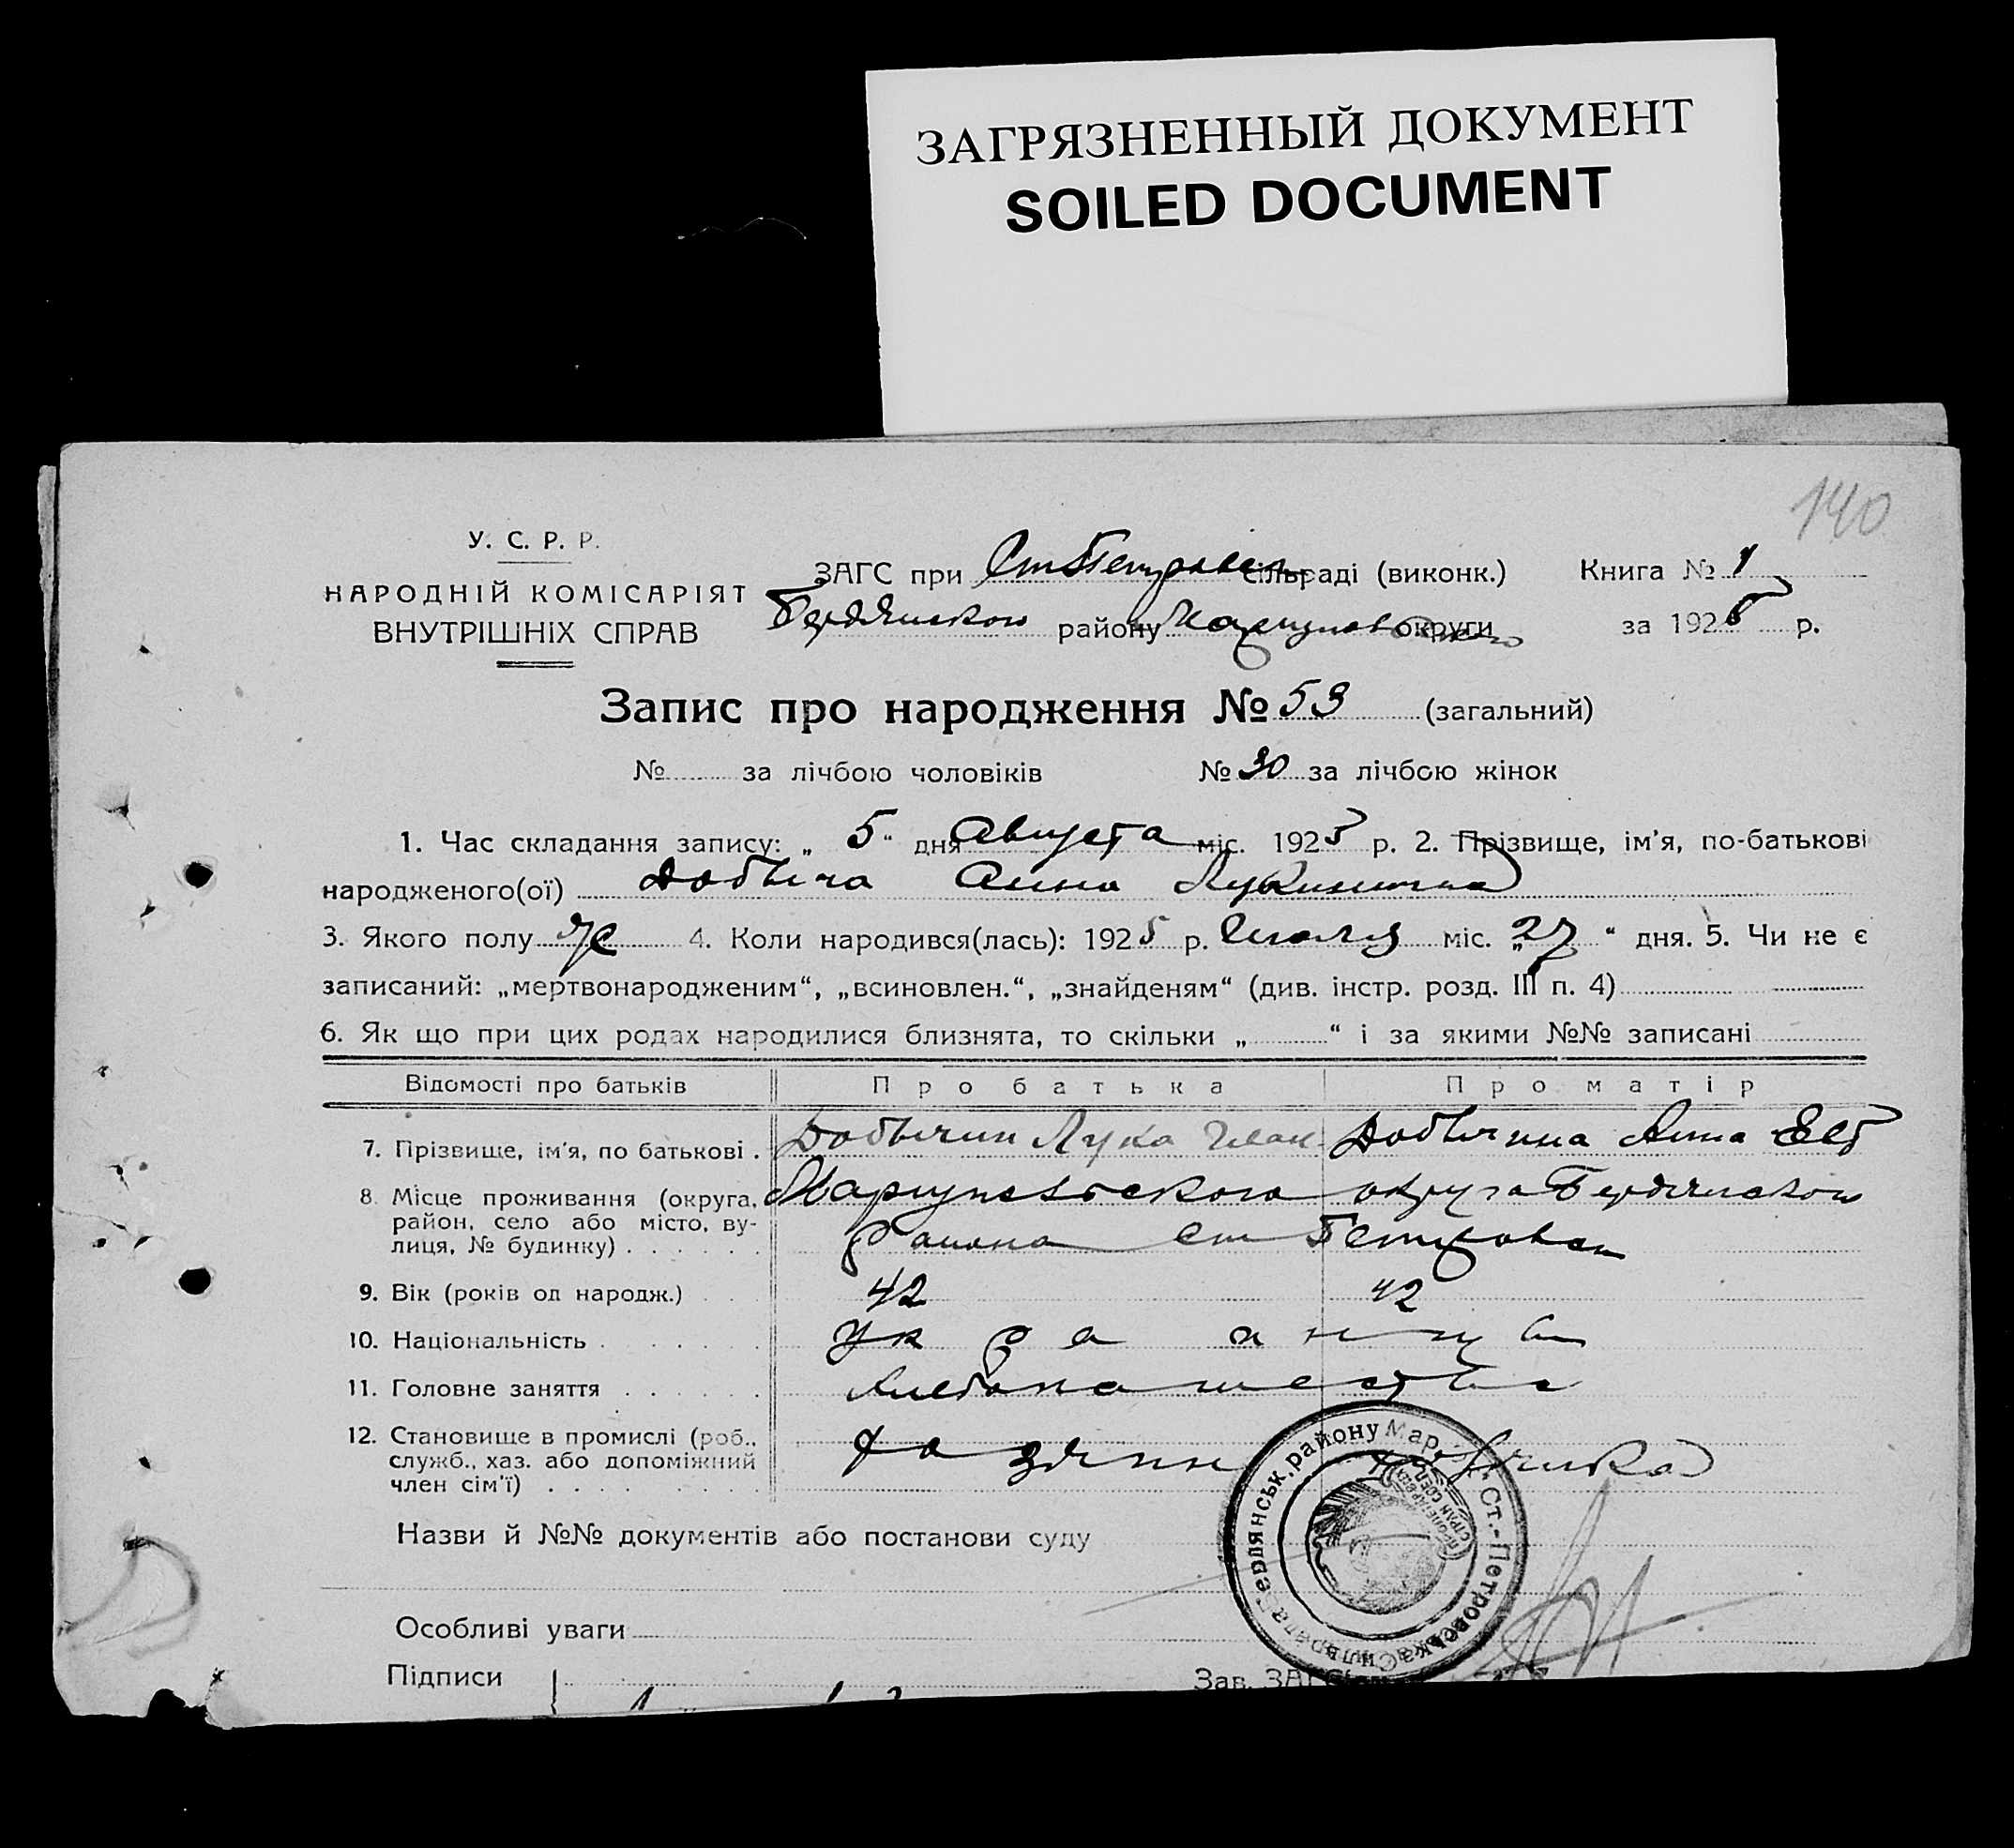 ЗАГРЯЗНЕННЫЙ ДОКУМЕНТ
SOILED DOCUMENT
140
У. С. Р. Р.
НАРОДНІЙ КОМІСАРІЯТ
ВНУТРІШНІХ СПРАВ
ЗАГС при Ст Петровск сільраді (виконк.) Книга № 1
Бердянского району Мариупольского округи за 1925 р.
Запис про народження № 53 (загальний)
№ за лічбою чоловіків № 30 за лічбою жінок
1. Час складання запису: „ 5 “ дня Августа міс. 1925 р. 2. Прізвище, ім'я, по-батькові
народженого(ої) Анна Лукинична
3. Якого полу ж 4. Коли народився(лась): 1925 р. Июля міс. „27“ дня. 5. Чи не є
записаний: „мертвонародженим“, „всиновлен.“, „знайденям“ (див. інстр. розд. III п. 4)
6. Як що при цих родах народилися близнята, то скільки „ “ і за якими №№ записані
Відомості про батьків Про батька Про матір
7. Прізвище, ім'я, по батькові . Добычин Лука Иван Добычина Анна Евд
8. Місце проживання (округа, район, село або місто, вулиця, № будинку) Мариупольского округа Бердянского
Района ст Петровск
9. Вік (років од народж.) 42 42
10. Національність украинцы
11. Головне заняття хлебопашество
12. Становище в промислі (роб., служб., хаз. або допоміжний член сім'ї) хозяин хозяйка
Назви й №№ документів або постанови суду
Особливі уваги
Підписи Зав. ЗАГС
Ст.-Петровська Сильрада Бердянськ. району Мар.